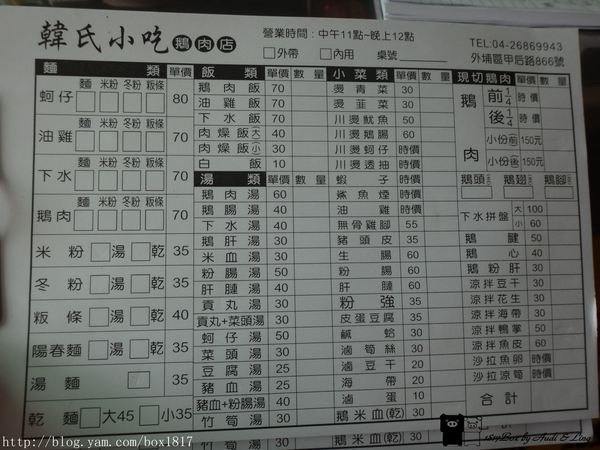 韓氏小吃 鵝肉店
營業時間：中午11點~晚上12點
□外帶 □內用 桌號
TEL:04-26869943
外埔區甲后路866號
麵類 單價
麵 米粉 冬粉 粄條
蚵仔 80
麵 米粉 冬粉 粄條
油雞 70
麵 米粉 冬粉 粄條
下水 70
麵 米粉 冬粉 粄條
鵝肉 70
米粉 □湯 □乾 35
冬粉 □湯 □乾 35
粄條 □湯 □乾 40
陽春麵 □湯 □乾 35
湯麵 □ 35
乾麵 □大45 □小35
飯類 單價 數量
鵝肉飯 70
油雞飯 70
下水飯 70
肉燥飯(大) 40
肉燥飯(小) 30
白飯 10
湯類 單價 數量
鵝肉湯 60
鵝腸湯 40
下水湯 40
鵝肝湯 30
米血湯 30
粉腸湯 50
肝腱湯 40
貢丸湯 30
貢丸+菜頭湯 30
蚵仔湯 50
菜頭湯 30
豆腐湯 25
豬血湯 25
豬血+粉腸湯 40
竹筍湯 30
小菜類 單價 數量
燙青菜 30
燙韮菜 30
川燙魷魚 50
川燙鵝腸 60
川燙蚵仔 時價
川燙透抽 時價
蝦子 時價
鯊魚煙 時價
油雞 時價
無骨雞腳 55
豬頭皮 35
生腸 60
粉腸 60
肝腱 60
粉強 35
皮蛋豆腐 35
鹹蛤 30
滷筍絲 30
滷豆干 20
海帶 20
滷蛋 10
鵝米血(乾) 30
現切鵝肉 單價 數量
鵝肉
前1/4 時價
後1/4 時價
小份(前) 150元
小份(後) 150元
鵝頭 鵝翅 鵝腳
下水拼盤 大 100
小 60
鵝腱 50
鵝心 40
鵝粉肝 30
涼拌豆干 30
涼拌花生 30
涼拌海帶 30
涼拌鴨掌 50
涼拌魚皮 60
沙拉魚卵 時價
沙拉涼筍 時價
合計
鵝米血(乾) 30
竹筍湯 30
http://blog.yam.com/box1817
1817Box by Audi & Ling